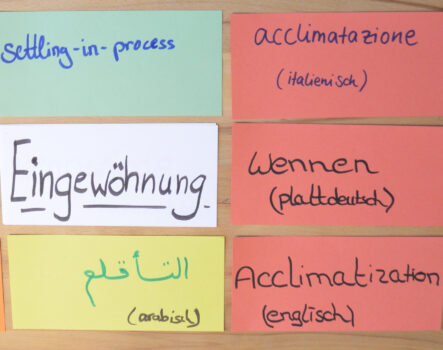 settling-in-process
acclimatazione
(italienisch)
Eingewöhnung
Wennen
(plattdeutsch)
التأقلم
(arabisch)
Acclimatization
(englisch)